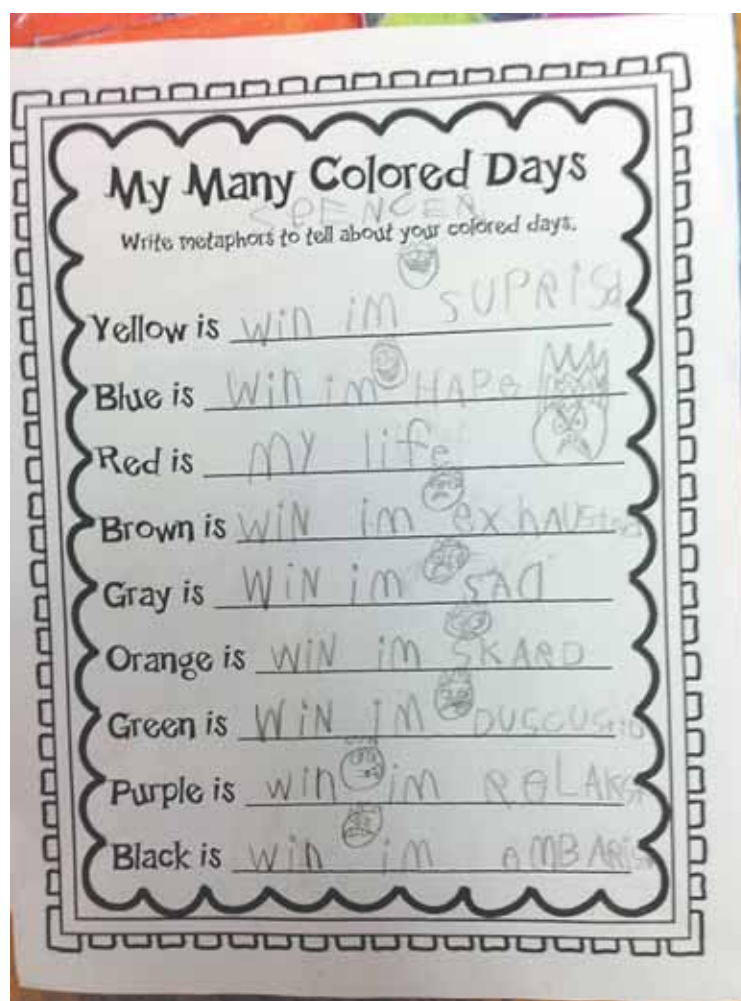 My Many Colored Days
SPENCER
Write metaphors to tell about your colored days.
Yellow is win im SUPRISd
Blue is win im HAPe
Red is MY life
Brown is WiN im exhAUSted
Gray is WiN im SAD
Orange is WiN im SKARD
Green is WiN IM DUSCUSTID
Purple is win im RELAKST
Black is win im AMBARIS